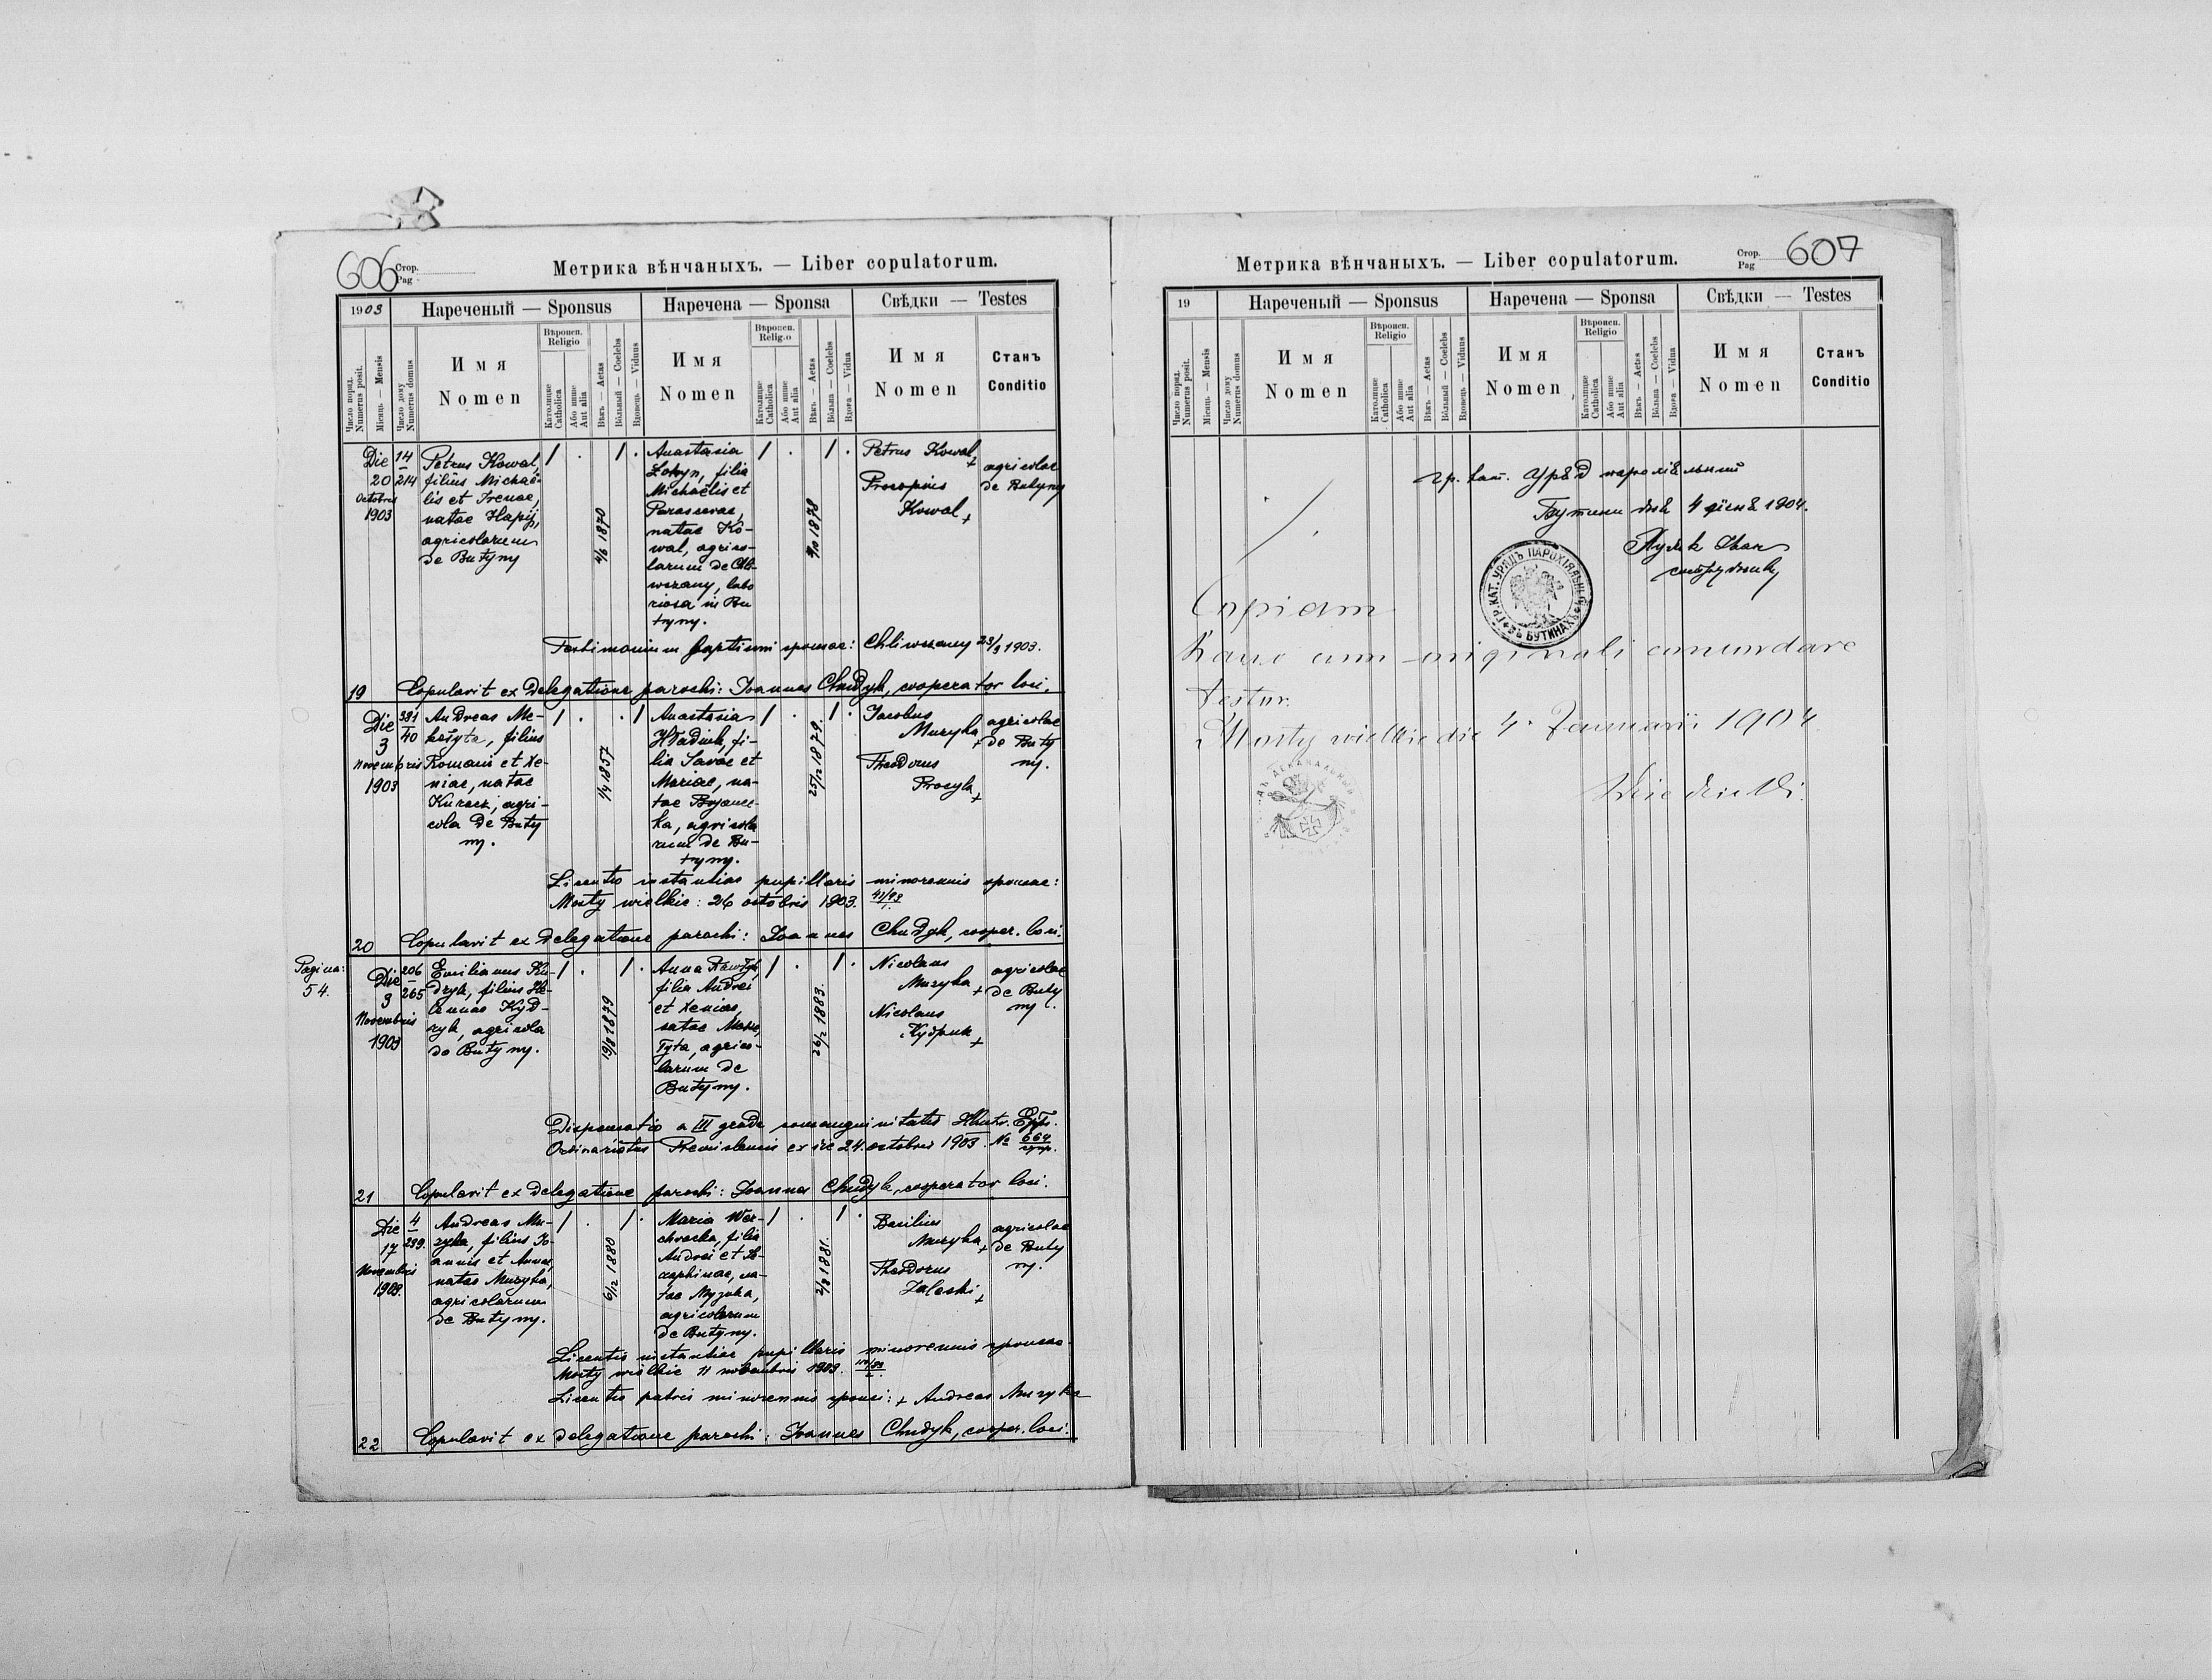 606 Стор.
Pag
Метрика вѣнчаныхъ. — Liber copulatorum.
1903
Нареченый — Sponsus
Наречена — Sponsa
Свѣдки — Testes
Число поряд.
Numerus posit.
Мѣсяць — Mensis
Число дому
Numerus domus
Имя
Nomen
Вѣроисп.
Religio
Католицке
Catholica
Або инше
Aut alia
Вѣкъ — Aetas
Вôльный — Coelebs
Вдовець — Viduus
Имя
Nomen
Вѣроисп.
Religio
Католицке
Catholica
Або инше
Aut alia
Вѣкъ — Aetas
Вôльна — Coelebs
Вдова — Vidua
Имя
Nomen
Станъ
Conditio
Die
20
Octobris
1903
14
214
Petrus Kowal,
filius Michaë-
lis et Irenae,
natae Hapij,
agricolarum
de Butyny
1 . 1 .
4/6 1870
Anastasia
filia
Michaëlis et
Parascevae,
natae Ko-
wal, agrico-
larum de Chli-
wczany, labo
riosa in Bu
tyny.
1 . 1 .
1878
Petrus Kowal +
Procopius
Kowal +
agricolae
de Butyny
Testimonium baptismi sponsae: Chliwczany 23/9 1903.
19 Copulavit ex delegatione parochi: Joannes Chudyk, cooperator loci.
Die
3
Novembris
1903
331
40
Andreas Me-
kełyta, filius
Romani et Xe-
niae, natae
agri-
cola de Buty
ny.
1 . . 1
1/4 1857
Anastasia
Hładiuk, fi-
lia Savae et
Mariae, na-
tae Bojanec-
ka, agricola
rum de Bu-
tyny.
1 . 1 .
25/12 1879.
Jacobus
Muzyka +
Theodorus
Procyk +
agricolae
de Buty
ny.
Licentia instantiae pupillaris minorennis sponsae:
Mosty wielkie: 26 octobris 1903.
20 Copulavit ex delegatione parochi: Joannes Chudyk, cooper. loci.
Pagina:
54.
Die
3
Novembris
1903
206
265
Emilianus Ky-
dryk, filius He-
lennae Kyd-
ryk, agricola
de Butyny.
1 . 1 .
19/8 1879
Anna
filia Andrei
et Xeniae,
natae Meke,
łyta, agrico-
larum de
Butyny.
1 . 1 .
26/2 1883.
Nicolaus
Muzyka +
Nicolaus
Кудрик +
agricolae
de Buty
ny.
Dispensatio a III gradu consanguinitatis Eppi.
Ordinariatus Premisliensis ex die 24. octobris 1903. № 664
21 Copulavit ex delegatione parochi: Joannes Chudyk, cooperator loci.
Die
17
Novembris
1903.
4
239.
Andreas Mu-
zyka, filius Jo-
annis et Annae,
natae Muzyka,
agricolarum
de Butyny.
1 . 1 .
6/12 1880
Maria Wer-
chracka, filia
Andrei et Se-
raphinae, na-
tae Muzyka,
agricolarum
de Butyny.
1 . 1 .
2/8 1881.
Basilius
Muzyka +
Theodorus
Zaleski +
agricolae
de Buty
ny.
Licentia instantiae pupillaris minorennis sponsae
Mosty wielkie 11 novembris 1903.
Licentia patris minorennis sponsi: + Andreas Muzyka
22 Copulavit ex delegatione parochi: Joannes Chudyk, cooper. loci.
Метрика вѣнчаныхъ. — Liber copulatorum.
Стор.
Pag 607
19
Нареченый — Sponsus
Наречена — Sponsa
Свѣдки — Testes
Число поряд.
Numerus posit.
Мѣсяць — Mensis
Число дому
Numerus domus
Имя
Nomen
Вѣроисп.
Religio
Католицке
Catholica
Або инше
Aut alia
Вѣкъ — Aetas
Вôльный — Coelebs
Вдовець — Viduus
Имя
Nomen
Вѣроисп.
Religio
Католицке
Catholica
Або инше
Aut alia
Вѣкъ — Aetas
Вôльна — Coelebs
Вдова — Vidua
Имя
Nomen
Станъ
Conditio
гр. кат. Урѧд парохіяльний
Бутини дня 4 січня 1904.
Іван
сотрудник
ГР. КАТ. УРЯДЪ ПАРОХІЯЛЬНЫЙ ВЪ БУТИНАХЪ
Copiam
hanc cum originali concordare
testor.
Mosty wielkie die 4. Januarii 1904